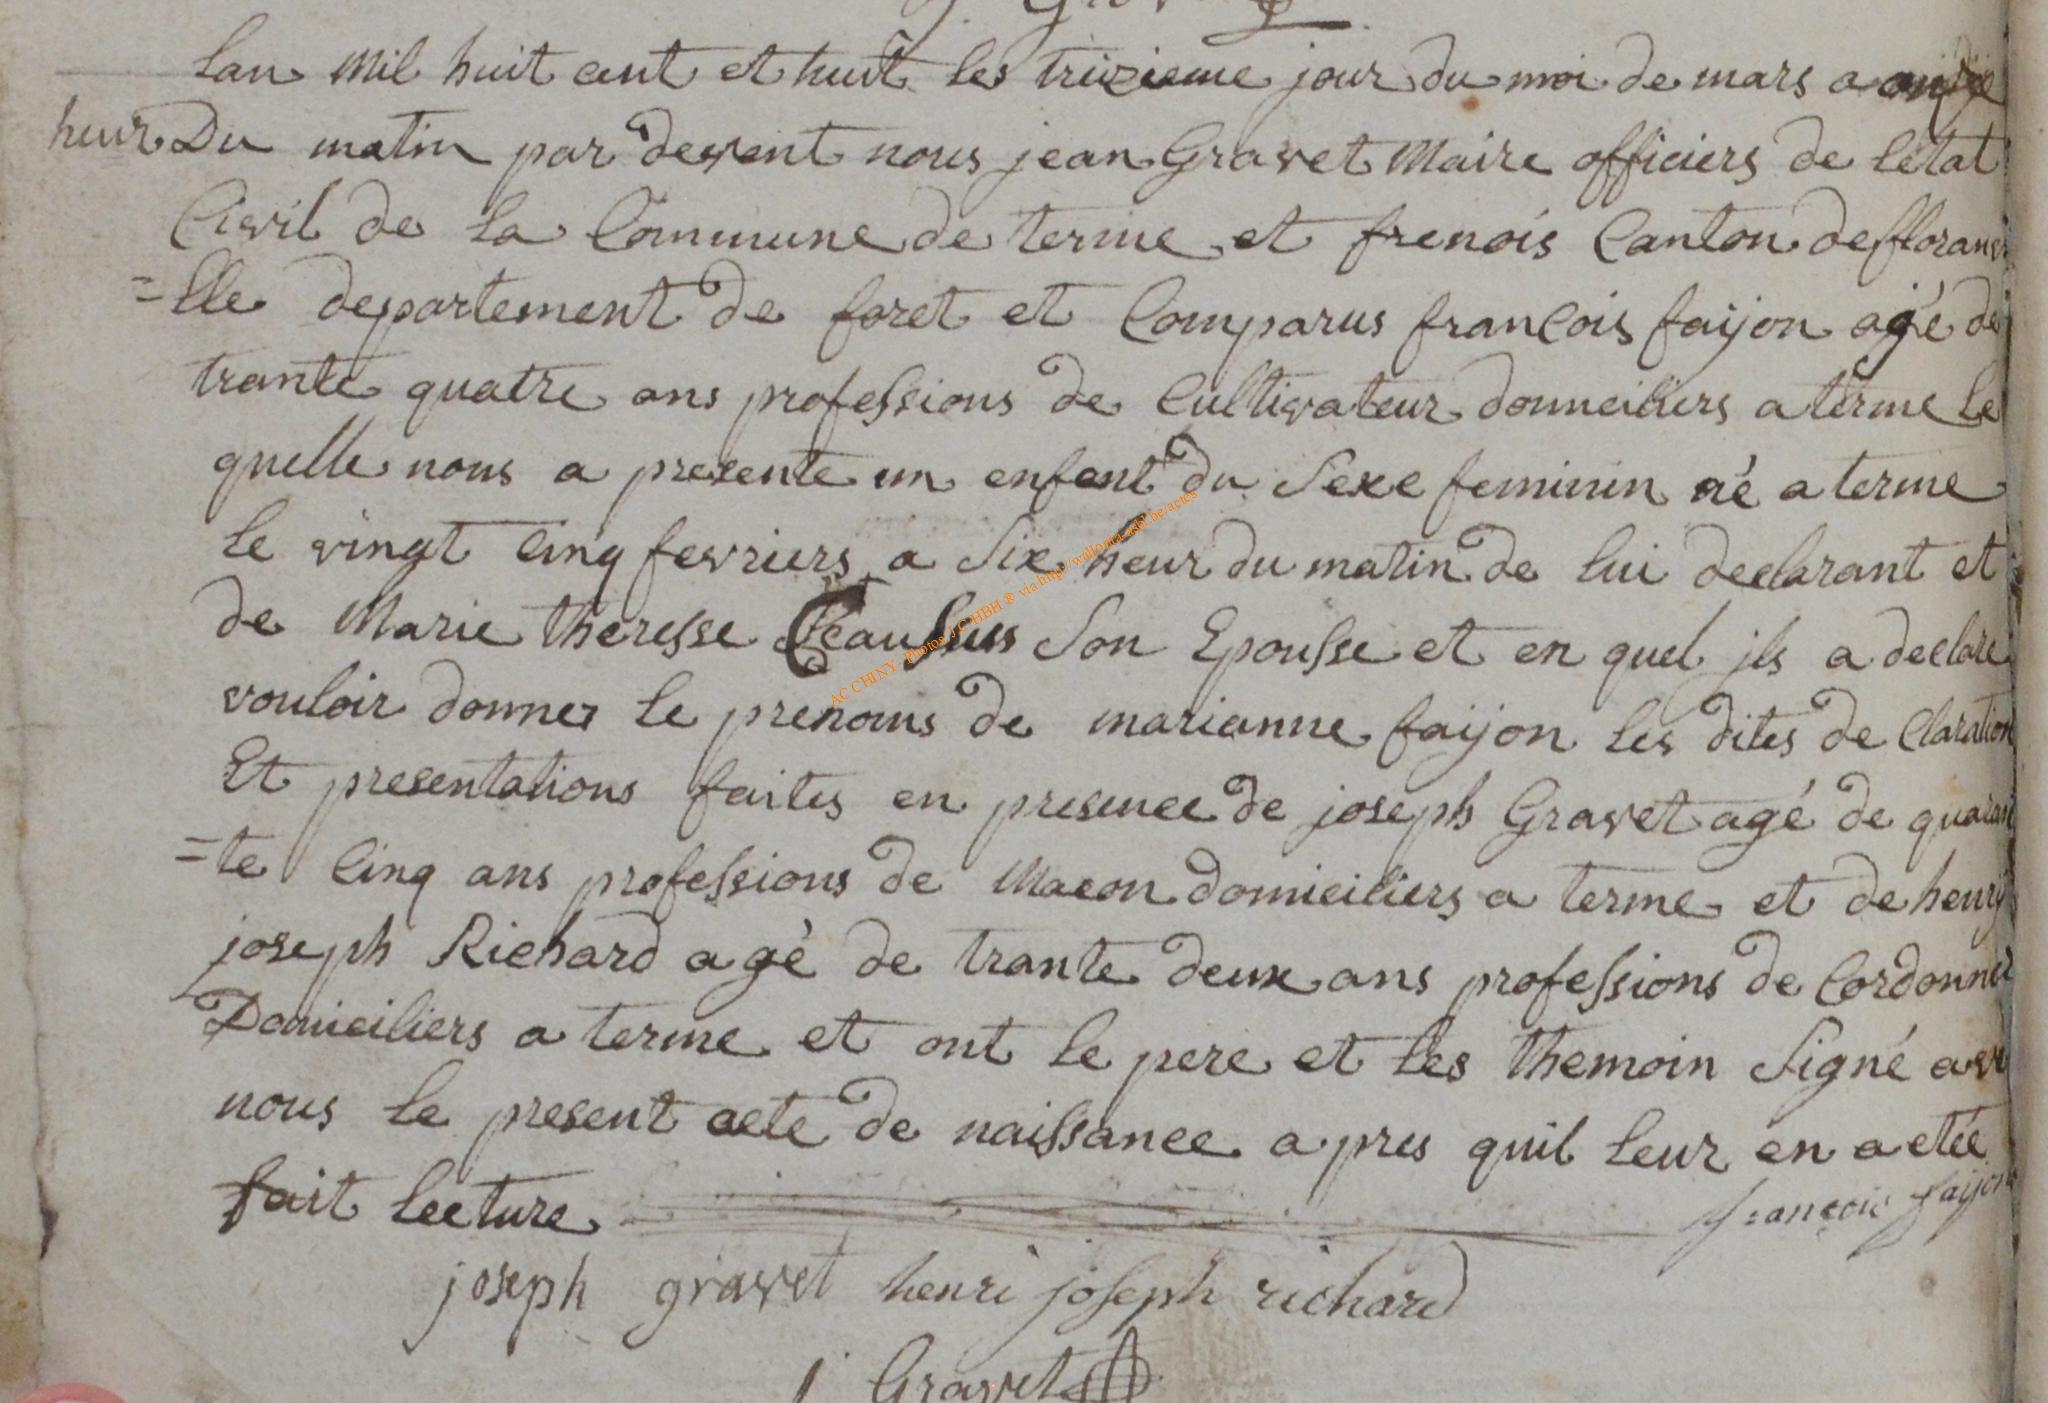 Lan Mil huit cent et huit les treizieme jour du moi de mars a onze
heur Du matin par devent nous jean Gravet Maire officiers de letat
Civil de la Commune de terme et frenois Canton de floranvi
=lle departement de foret et Comparus francois faijon agé de
trante quatre ans professions de Cultivateur domiciliers a terme le
quelle nous a presente un enfant du Sexe feminin né a terme
le vingt Cinq fevriers a Six heur du matin de lui declarant et
de Marie theresse Son Epousse et en quel ils a declare
vouloir donner le prenoms de marianne faijon les dites de Claration
Et presentations faites en presence de joseph Gravet agé de quaran
=te Cinq ans professions de Macon domiciliers a terme et de henrij
joseph Richard agé de trante deux ans professions de Cordonnei
Domiciliers a terme et ont le pere et les themoin Signé ave
nous le present acte de naissance a pres quil leur en a etée
fait lecture
françois faijon
joseph gravet henri joseph richard
j Gravet
AC CHINY - Photos J.C HBH ® via http://wallonica.asbl.be/actes